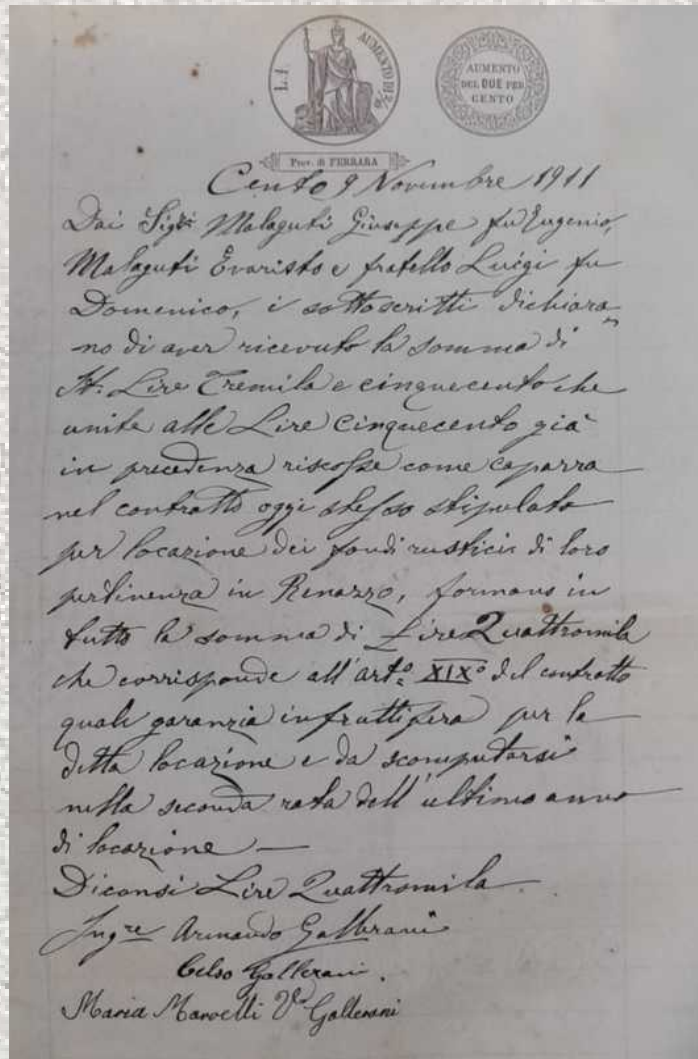 L. 1
AUMENTO DI 2/10
AUMENTO
DEL DUE PER
CENTO
Prov. di FERRARA
Cento 9 Novembre 1911
Dai Sigri Malaguti Giuseppe fu Eugenio,
Malaguti Evaristo e fratello Luigi fu
Domenico, i sottoscritti dichiara
no di aver ricevuto la somma di
It. Lire Tremila e cinquecento che
unite alle Lire Cinquecento già
in precedenza riscosse come caparra
nel contratto oggi stesso stipulato
per locazione dei fondi rustici di loro
pertinenza in Renazzo, formano in
tutto la somma di Lire Quattromila
che corrisponde all'arto. XIXo del contratto
quale garanzia infruttifera per la
detta locazione e da scomputarsi
nella seconda rata dell'ultimo anno
di locazione —
Diconsi Lire Quattromila
Ingre Armando Gallerani
Celso Gallerani.
Maria Marvelli Va Gallerani